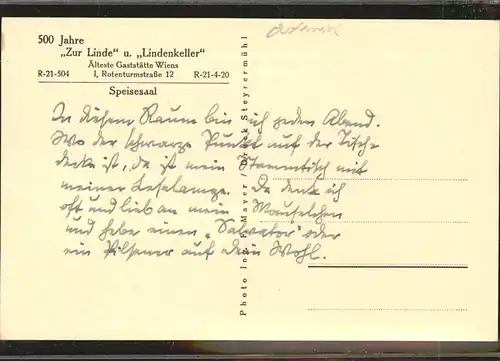 500 Jahre
„Zur Linde“ u. „Lindenkeller“
Älteste Gaststätte Wiens
R-21-504 I, Rotenturmstraße 12 R-21-4-20
Speisesaal
In diesem Raum bin ich jeden Abend.
Wo der schwarze Punkt auf der Tisch-
decke ist, da ist mein Stammtisch mit
meiner Leselampe. Da denk ich
oft und lieb an mein Mauselchen
und hebe einen „Salvator“ oder
ein Pilsener auf dein Wohl.
Photo Inh. F. Mayer / Druck Steyrermühl